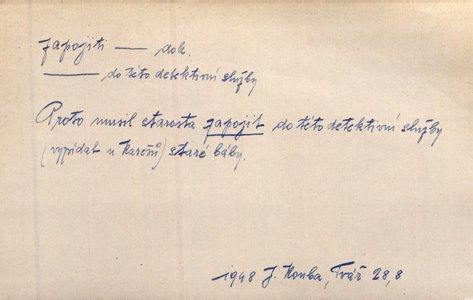 zapojiti — dok.
——— do této detektivní služby
Proto musil starosta zapojit do této detektivní služby
(vyzvídat u Karešů) staré báby.
1948 J. Kouba, Tvář 28,8